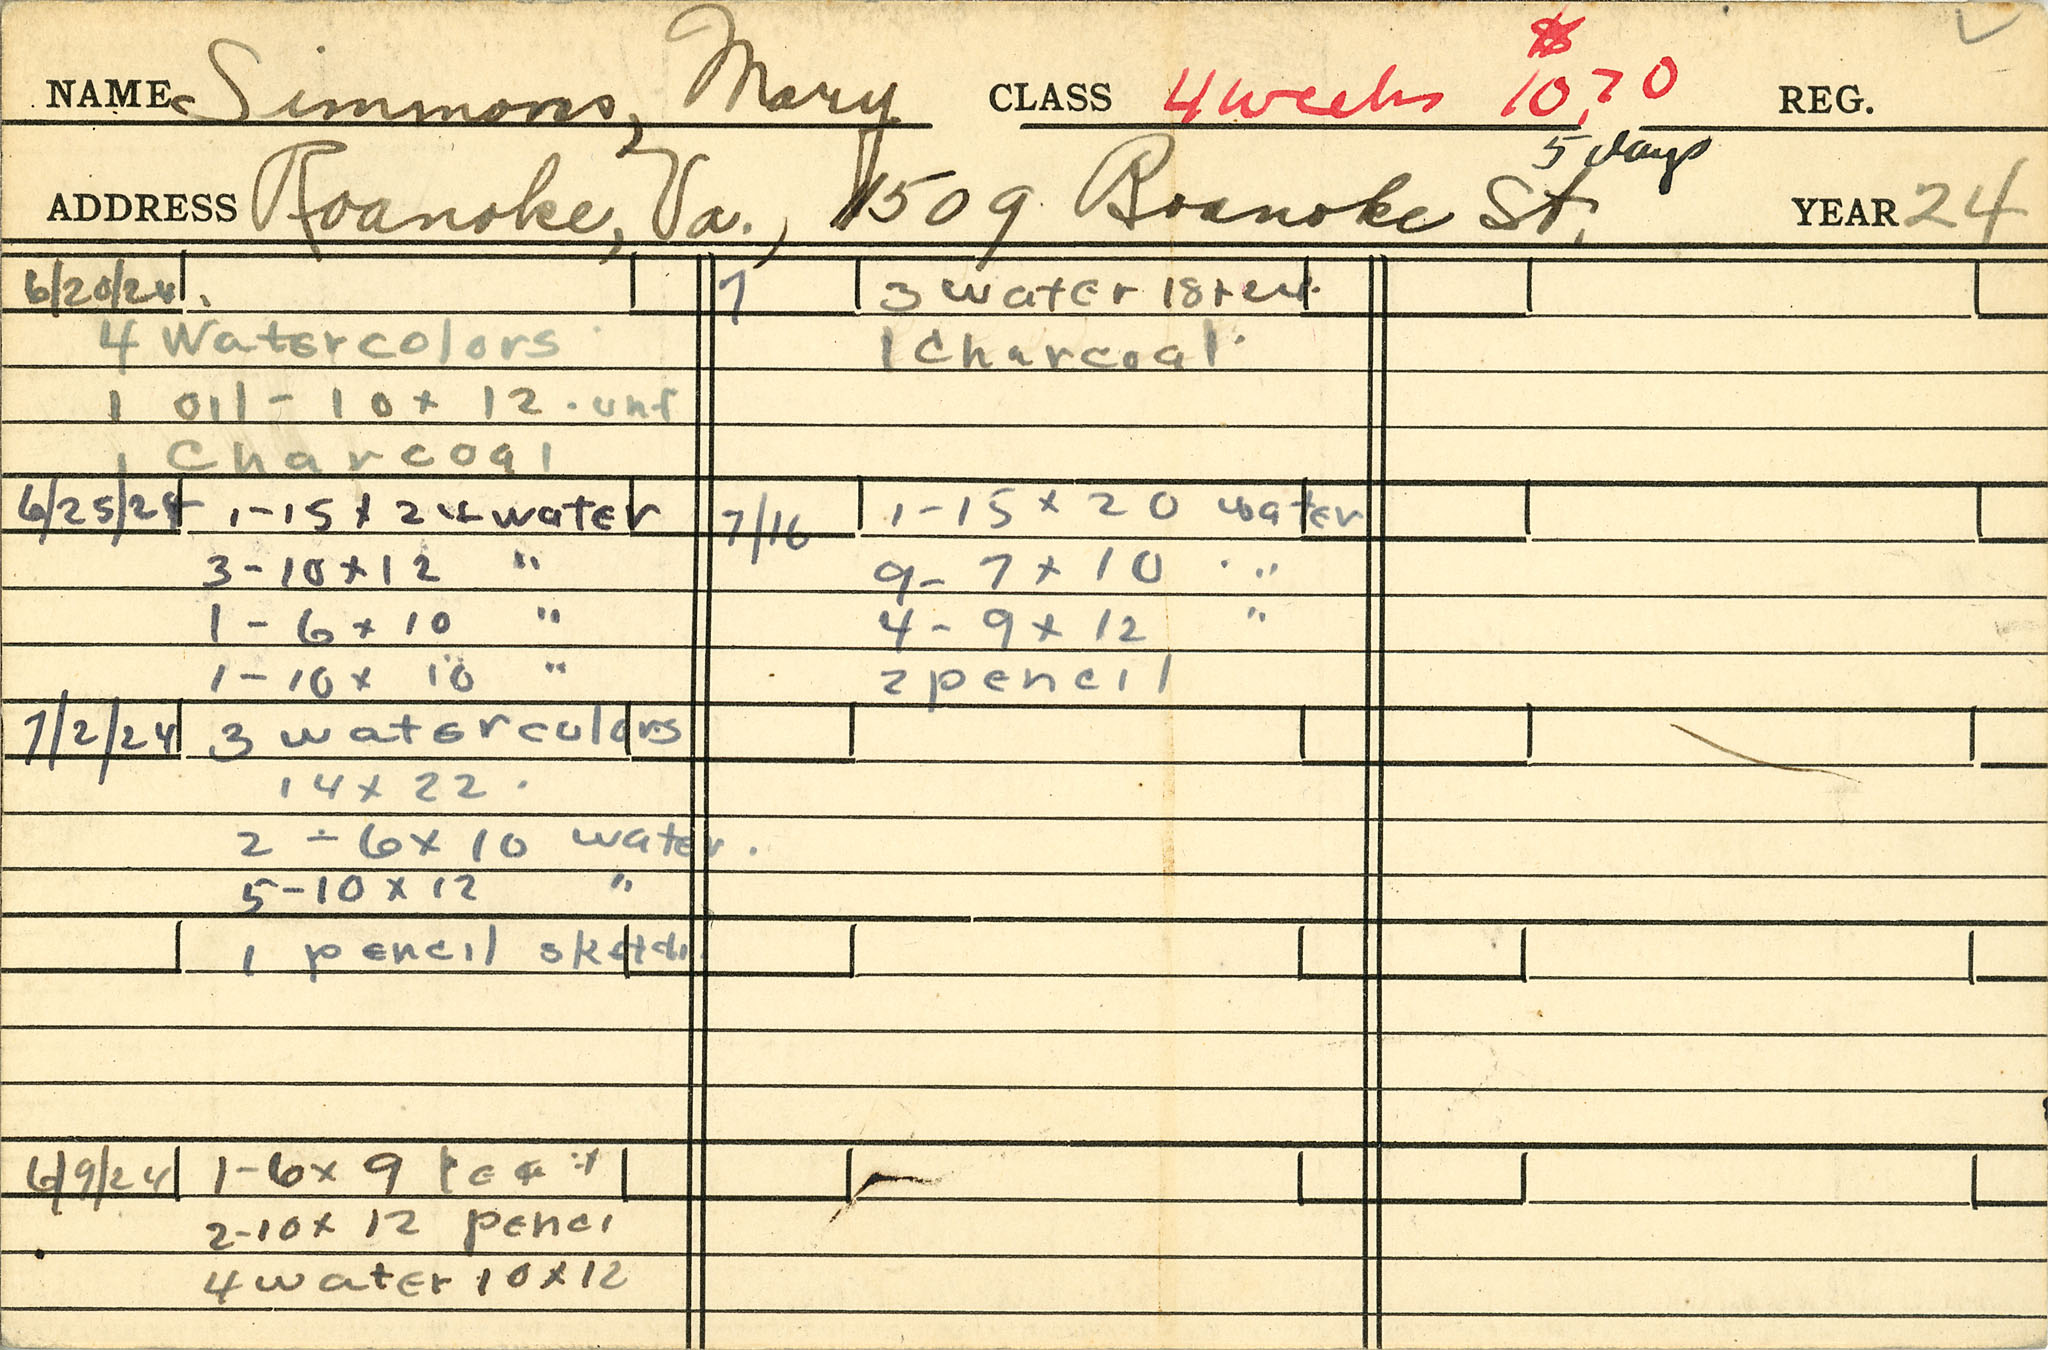 NAME Simmons, Mary CLASS 4 weeks 10,70 REG.
5 days
ADDRESS Roanoke, Va., 1509 Roanoke St. YEAR 24
6/20/24
4 Watercolors
1 Oil - 10 x 12 . unf
1 Charcoal
6/25/24 1-15 x 24 water
3-10x12 "
1-6x10 "
1-10x 10 "
7/2/24 3 watercolors
14x22.
2-6x10 water.
5-10x12 "
1 pencil sketch
6/9/24 1-6x9
2-10x12 penci
4 water 10x12
7 3 water 18x24.
1 Charcoal.
7/16 1-15x20 water
9-7x10 "
4-9x12 "
2 pencil